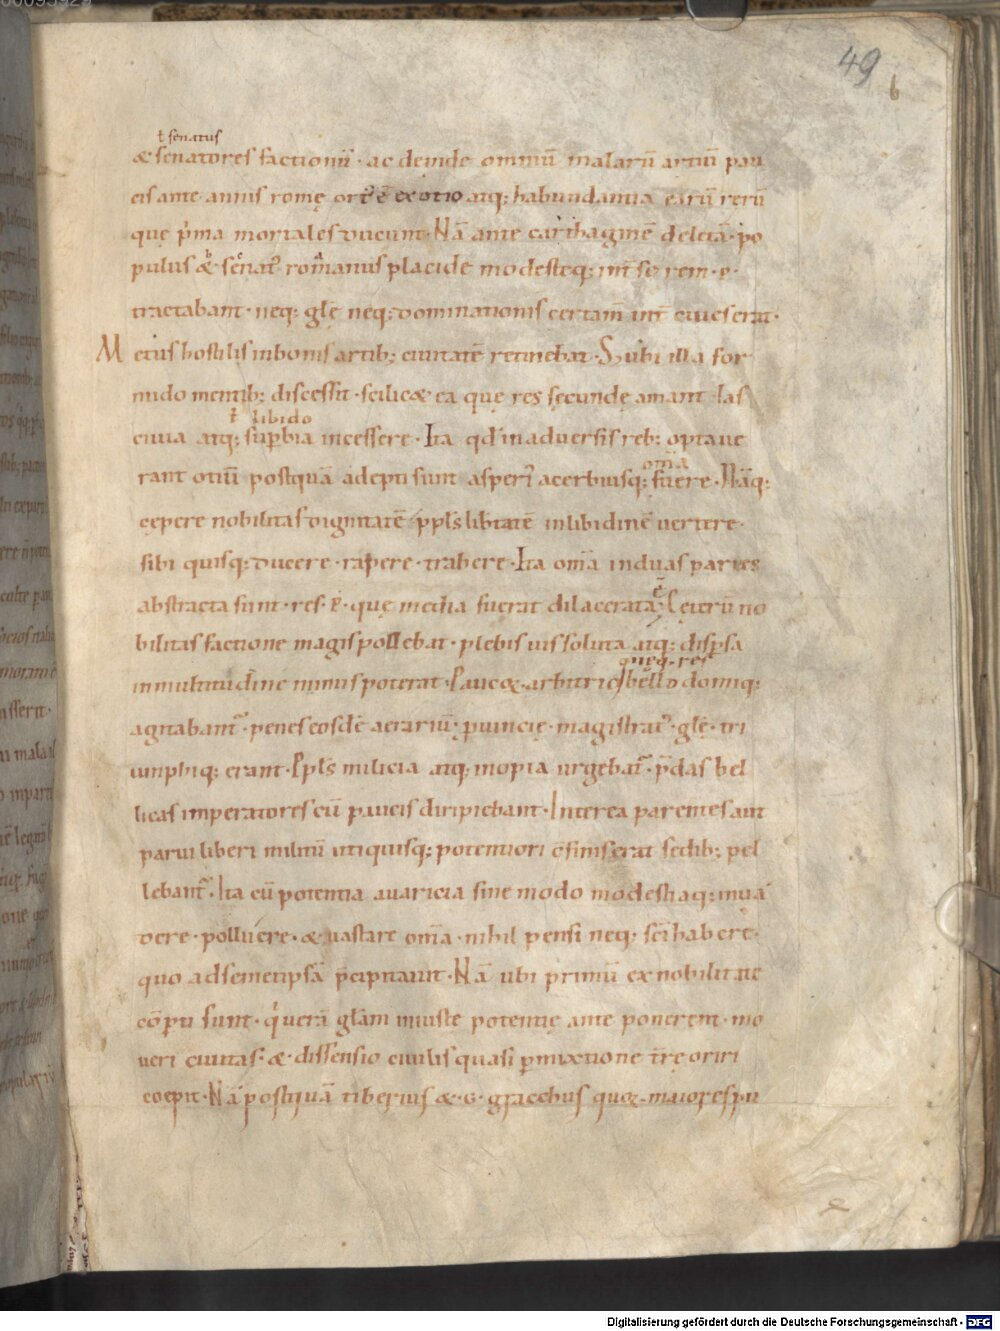 49
6
ł senatus
& senatores factionū · ac deinde omniū malarū artiū pau
cis ante annis romę ort᷒ ē ex otio atq; habundantia earū rerū
que p̄ma mortales ducunt · Nā ante carthaginē deletā · po
pulus & senat᷒ romanus placide modesteq; int̄ se rem · p ·
tractabant · neq; glę neq; dominationis certam̄ int̄ ciues erat ·
Metus hostilis in bonis artib; ciuitatē retinebat · S; ubi illa for
mido mentib; discessit · scilic& ea que res secundę amant · las
ł libido
ciuia atq; sup̄bia incessere · Ita qd̄ in aduersis reb; optaue
rant otiū postquā adepti sunt asperi᷒ acerbiusq; fuere · Nāq;
om̄a
cępere nobilitas dignitatē · ppl̄s lib̄tatē in libidinē uertere ·
sibi quisq; ducere · rapere · trahere · Ita om̄a in duas partes
abstracta sunt · res · p̄ · que media fuerat dilacerata · Ceterū no
ē
bilitas factione magis pollebat · plebis uis soluta atq; disp̄sa
in multitudine minus poterat · Pauc& · arbitrio bello domiq;
agitabant᷒ · penes eosdē aerariū · p̱uincię · magistrat᷒ · glę · tri
umphiq; erant · Ppl̄s milicia atq; inopia urgebat᷒ · p̄das bel
licas imperatores cū paucis diripiebant · Interea parentes aut
parui liberi militū uti quisq; potentiori c̄finis erat sedib; pel
lebant᷒ · Ita cū potentia auaricia sine modo modestiaq; inua
dere · polluere · & uastare om̄a · nihil pensi neq; sc̄i habere ·
quo ad semetipsā p̄cipitauit · Nā ubi primū ex nobilitate
cōp̄ti sunt · q̇ uerā glām iniuste potentię ante ponerent · mo
ueri ciuitas · & · dissensio ciuilis quasi p̱mixtione t̄rę oriri
coepit · Nā postquā tiberius & · G · gracchus quoꝝ maiores pu
Digitalisierung gefördert durch die Deutsche Forschungsgemeinschaft - DFG